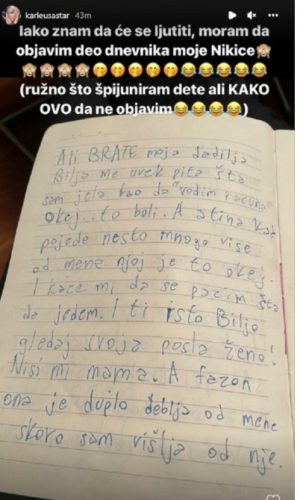 karleusastar 43m
Iako znam da će se ljutiti, moram da
objavim deo dnevnika moje Nikice🙈
🙈🙈🙈🙈🤭🤭🤭🤭🤭😂😂😂😂😂
(ružno što špijuniram dete ali KAKO
OVO da ne objavim😂😂😂😂)
Ali BRATE moja dadilja
Bilja me uvek pita šta
sam jela kao da "vodim računa"
okej.. to boli. A atina kad
pojede nesto mnogo vise
od mene njoj je to okej.
I kaže mi da se pazim šta
da jedem. I ti isto Biljo
gledaj svoja posla ženo!
Nisi mi mama. A fazon
ona je duplo deblja od mene
skoro sam višlja od nje.